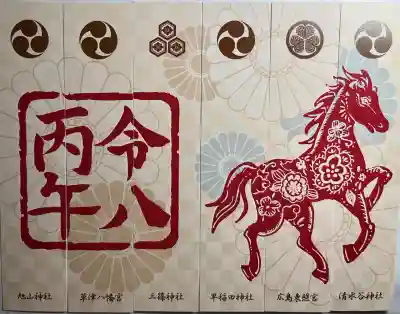 令八
丙午
旭山神社
草津八幡宮
三篠神社
早稲田神社
広島東照宮
清水谷神社